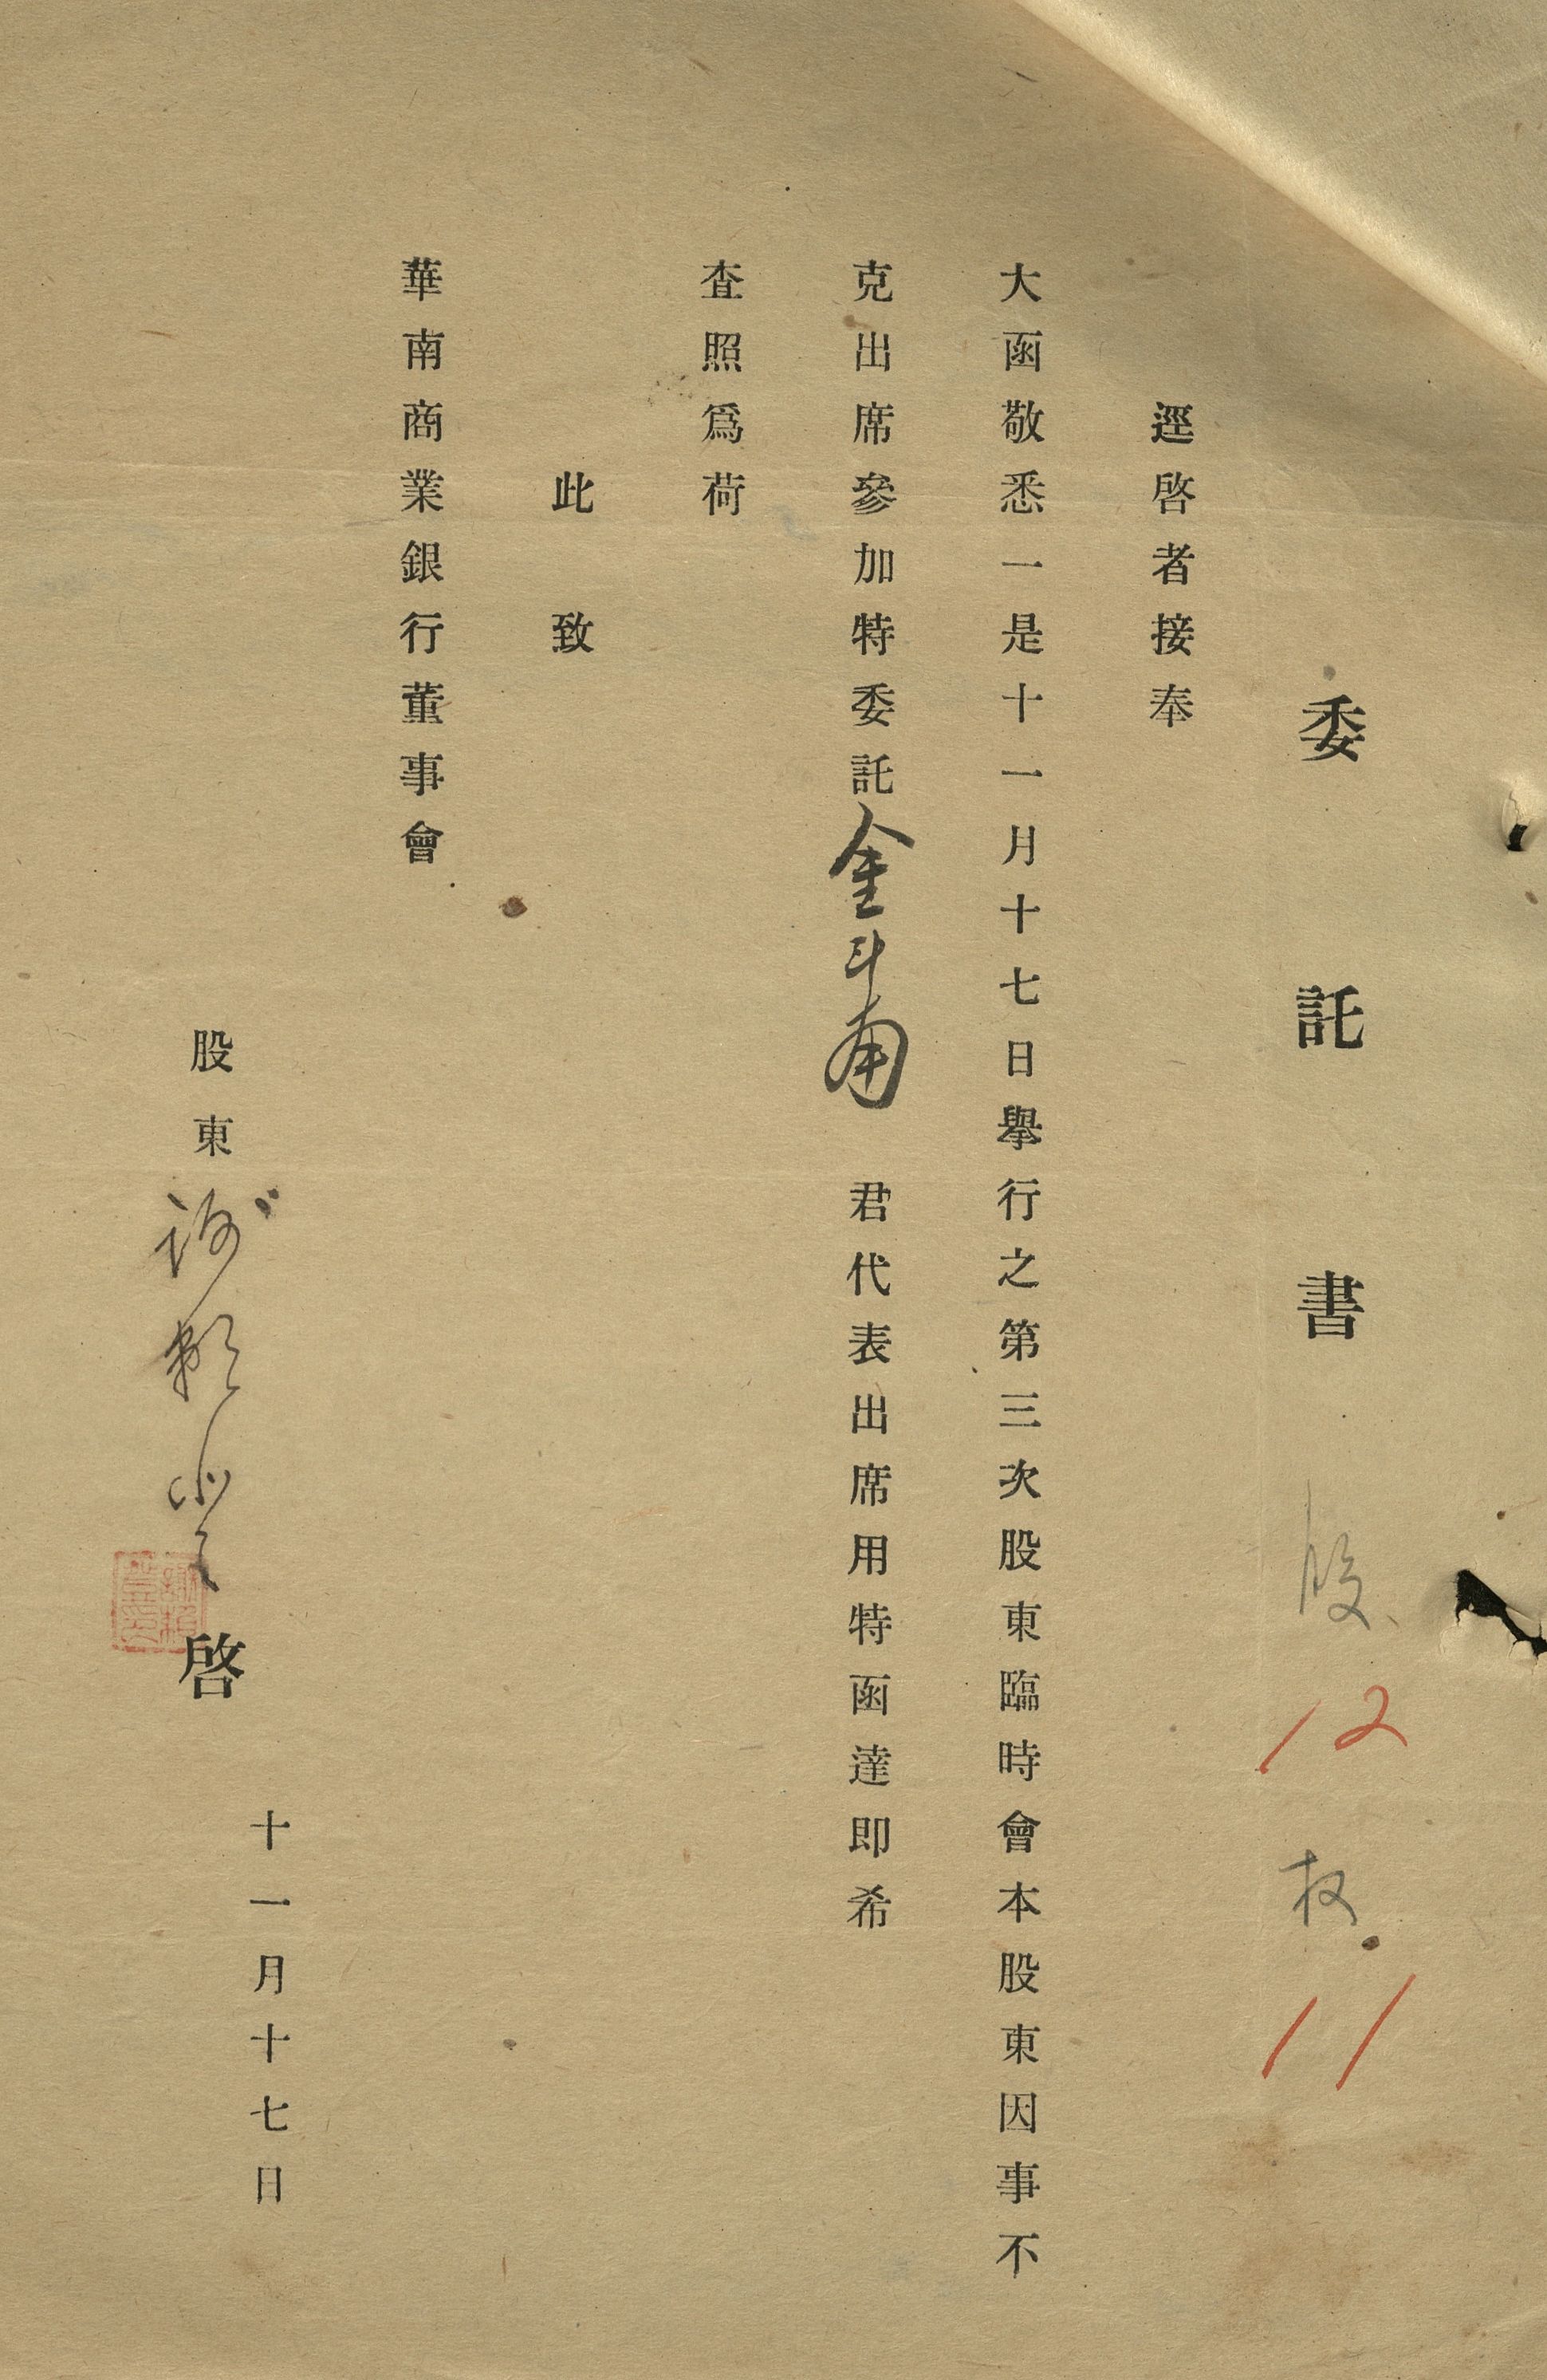 委託書 股 12 权 11
逕啓者接奉
大函敬悉一是十一月十七日舉行之第三次股東臨時會本股東因事不
克出席參加特委託金斗甫 君代表出席用特函達即希
査照爲荷
此致
華南商業銀行董事會
十一月十七日
股東 啓